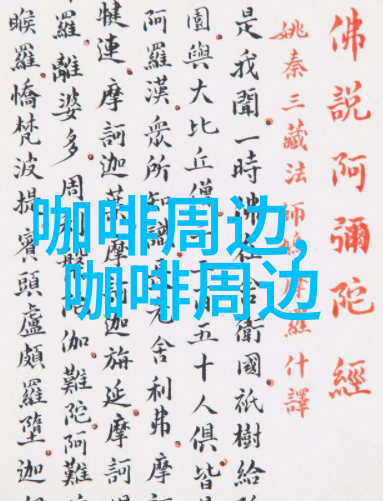 佛說阿彌陀經
姚秦三藏法師鳩摩羅什譯
是我聞一時佛在舍衛國祇樹給
園與大比丘僧二百五十人俱皆
阿羅漢眾所知識長老舍利弗摩
犍連摩訶迦葉摩訶迦旃延摩訶
羅離婆多周利槃陀伽難陀阿難
睺羅憍梵波提賓頭盧頗羅墮迦
咖啡周边,
咖啡周边